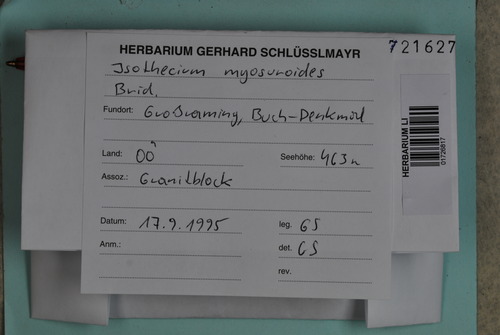 721627
HERBARIUM GERHARD SCHLÜSSLMAYR
Isothecium myosuroides
Brid.
Fundort: Großraming, Buch-Denkmal
Land: OÖ Seehöhe: 463m
Assoz.: Granitblock
Datum: 17.9.1995 leg. GS
Anm.: det. GS
rev.
HERBARIUM LI
01726817